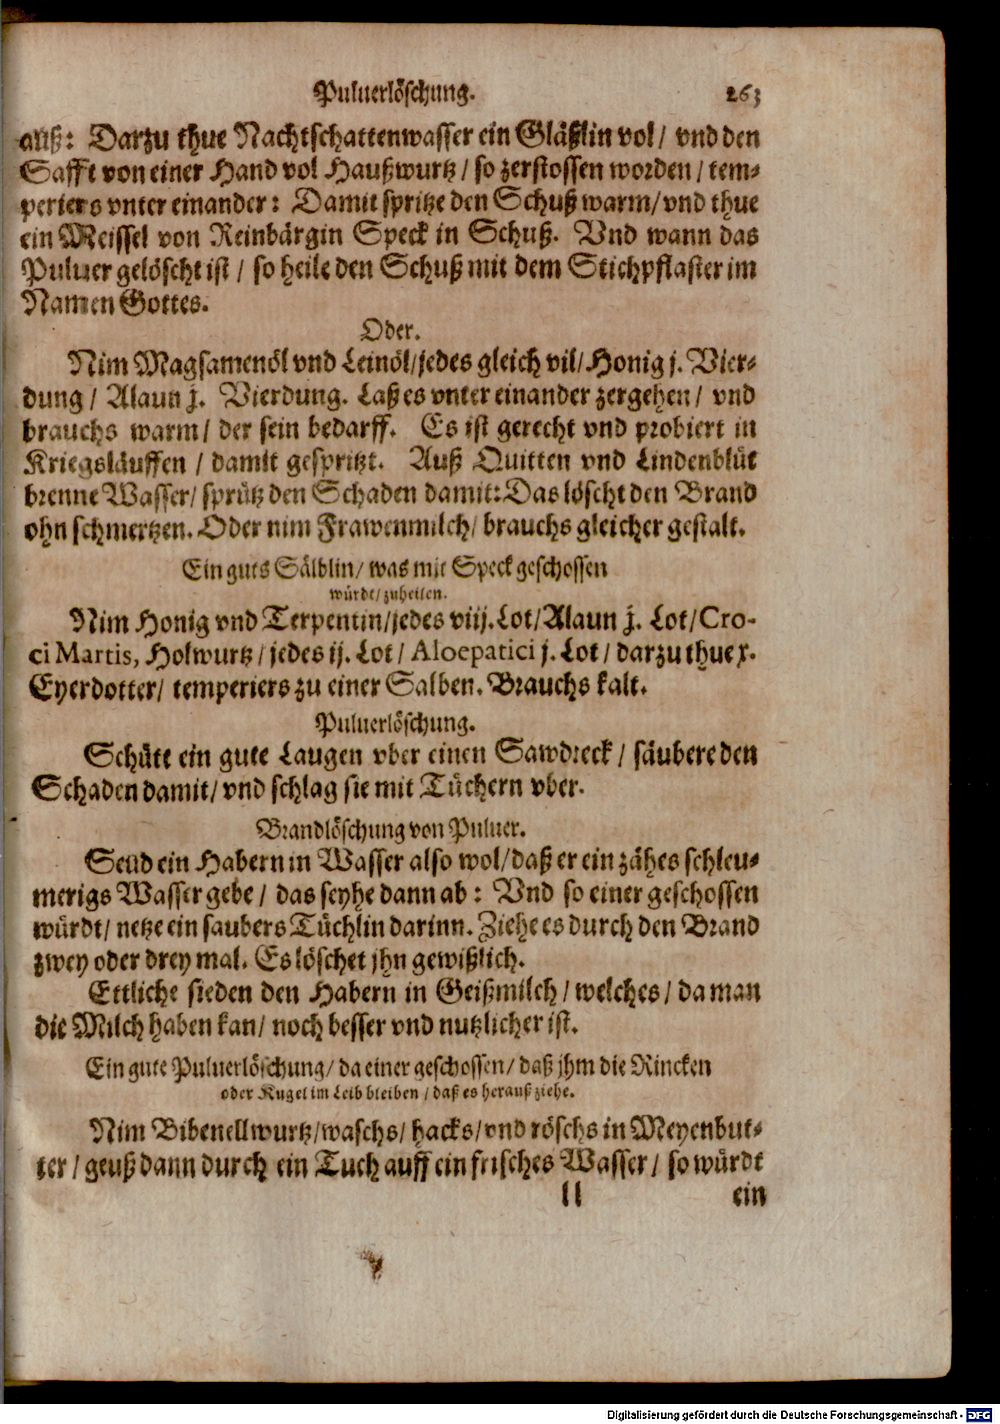 Puluerlöschung. 263
auß: Darzu thue Nachtschattenwasser ein Gläßlin vol/ vnd den
Safft von einer Hand vol Haußwurtz / so zerstossen worden / tem-
periers vnter einander: Damit spritze den Schuß warm/ vnd thue
ein Meissel von Reinbärgin Speck in Schuß. Vnd wann das
Puluer gelöscht ist / so heile den Schuß mit dem Stichpflaster im
Namen Gottes.
Oder.
Nim Magsamenöl vnd Leinöl/jedes gleich vil/ Honig j. Vier-
dung / Alaun j. Vierdung. Laß es vnter einander zergehen / vnd
brauchs warm/ der sein bedarff. Es ist gerecht vnd probiert in
Kriegsläuffen / damit gespritzt. Auß Quitten vnd Lindenblüt
brenne Wasser/ sprütz den Schaden damit: Das löscht den Brand
ohn schmertzen. Oder nim Frawenmilch/ brauchs gleicher gestalt.
Ein guts Sälblin/ was mit Speck geschossen
würdt/ zuheilen.
Nim Honig vnd Terpentin/jedes viij. Lot/Alaun j. Lot/Cro-
ci Martis, Holwurtz/ jedes ij. Lot/ Aloepatici j. Lot/ darzu thue x.
Eyerdotter/ temperiers zu einer Salben. Brauchs kalt.
Puluerlöschung.
Schütt ein gute Laugen vber einen Sawdreck / säubere den
Schaden damit/ vnd schlag sie mit Tüchern vber.
Brandlöschung von Puluer.
Seud ein Habern in Wasser also wol/daß er ein zähes schleu-
merigs Wasser gebe / das seyhe dann ab: Vnd so einer geschossen
würdt/ netze ein saubers Tüchlin darinn. Ziehe es durch den Brand
zwey oder drey mal. Es löschet jhn gewißlich.
Ettliche sieden den Habern in Geißmilch / welches / da man
die Milch haben kan/ noch besser vnd nutzlicher ist.
Ein gute Puluerlöschung/ da einer geschossen/ daß jhm die Rincken
oder Kugel im Leib bleiben / daß es herauß ziehe.
Nim Bibenellwurtz/waschs/ hacks/vnd röschs in Meyenbut-
ter / geuß dann durch ein Tuch auff ein frisches Wasser/ so würdt
ll ein
Digitalisierung gefördert durch die Deutsche Forschungsgemeinschaft - DFG